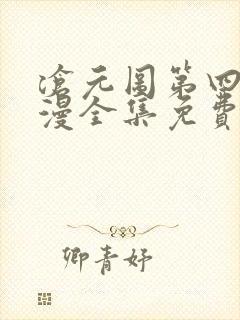 沧元图第四
漫全集免费
卿青妤